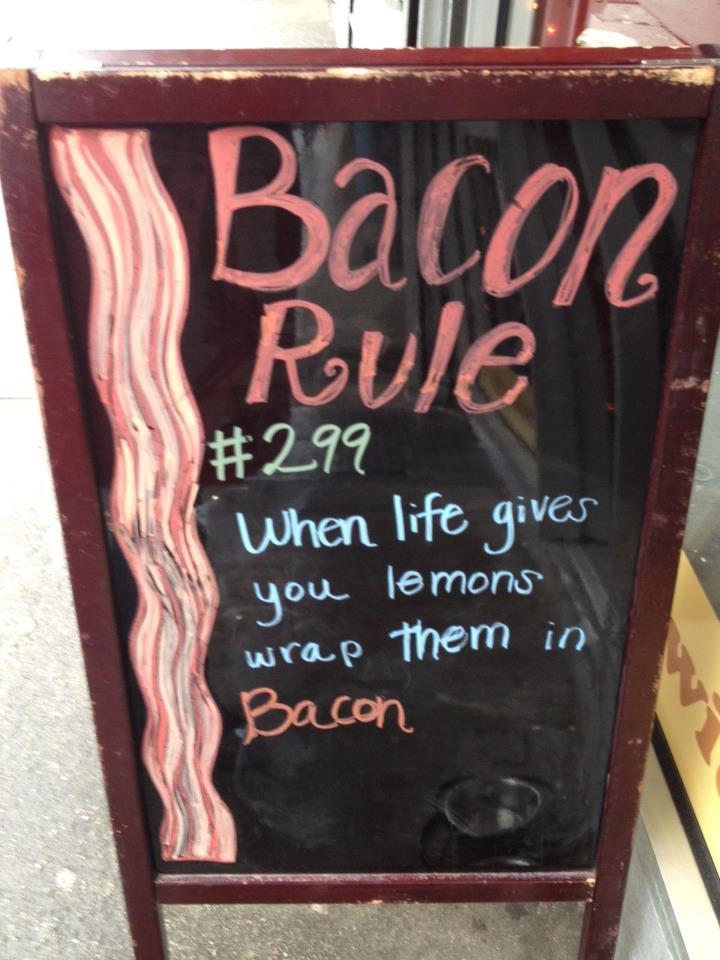 Bacon
Rule
#299
When life gives
you lemons
wrap them in
Bacon